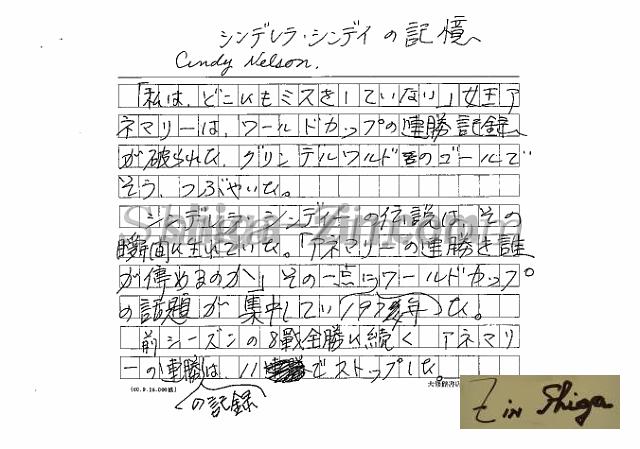 シンデレラ・シンデイの記憶
Cindy Nelson.
「私は、どこにもミスをしていない」女王ア
ネマリーは、ワールドカップの連勝記録
が破られた、グリンデルワルドのゴールで
そう、つぶやいた。
シンデレラ・シンディーの伝説は、その
瞬間に生れていた。「アネマリーの連勝を誰
が停めるのか」その一点にワールドカップ
の話題が集中してい た。
前シーズンの8戦全勝に続く アネマリ
ーの連勝は、11 でストップした。
の記録
Shiga Zin
Z in Shiga